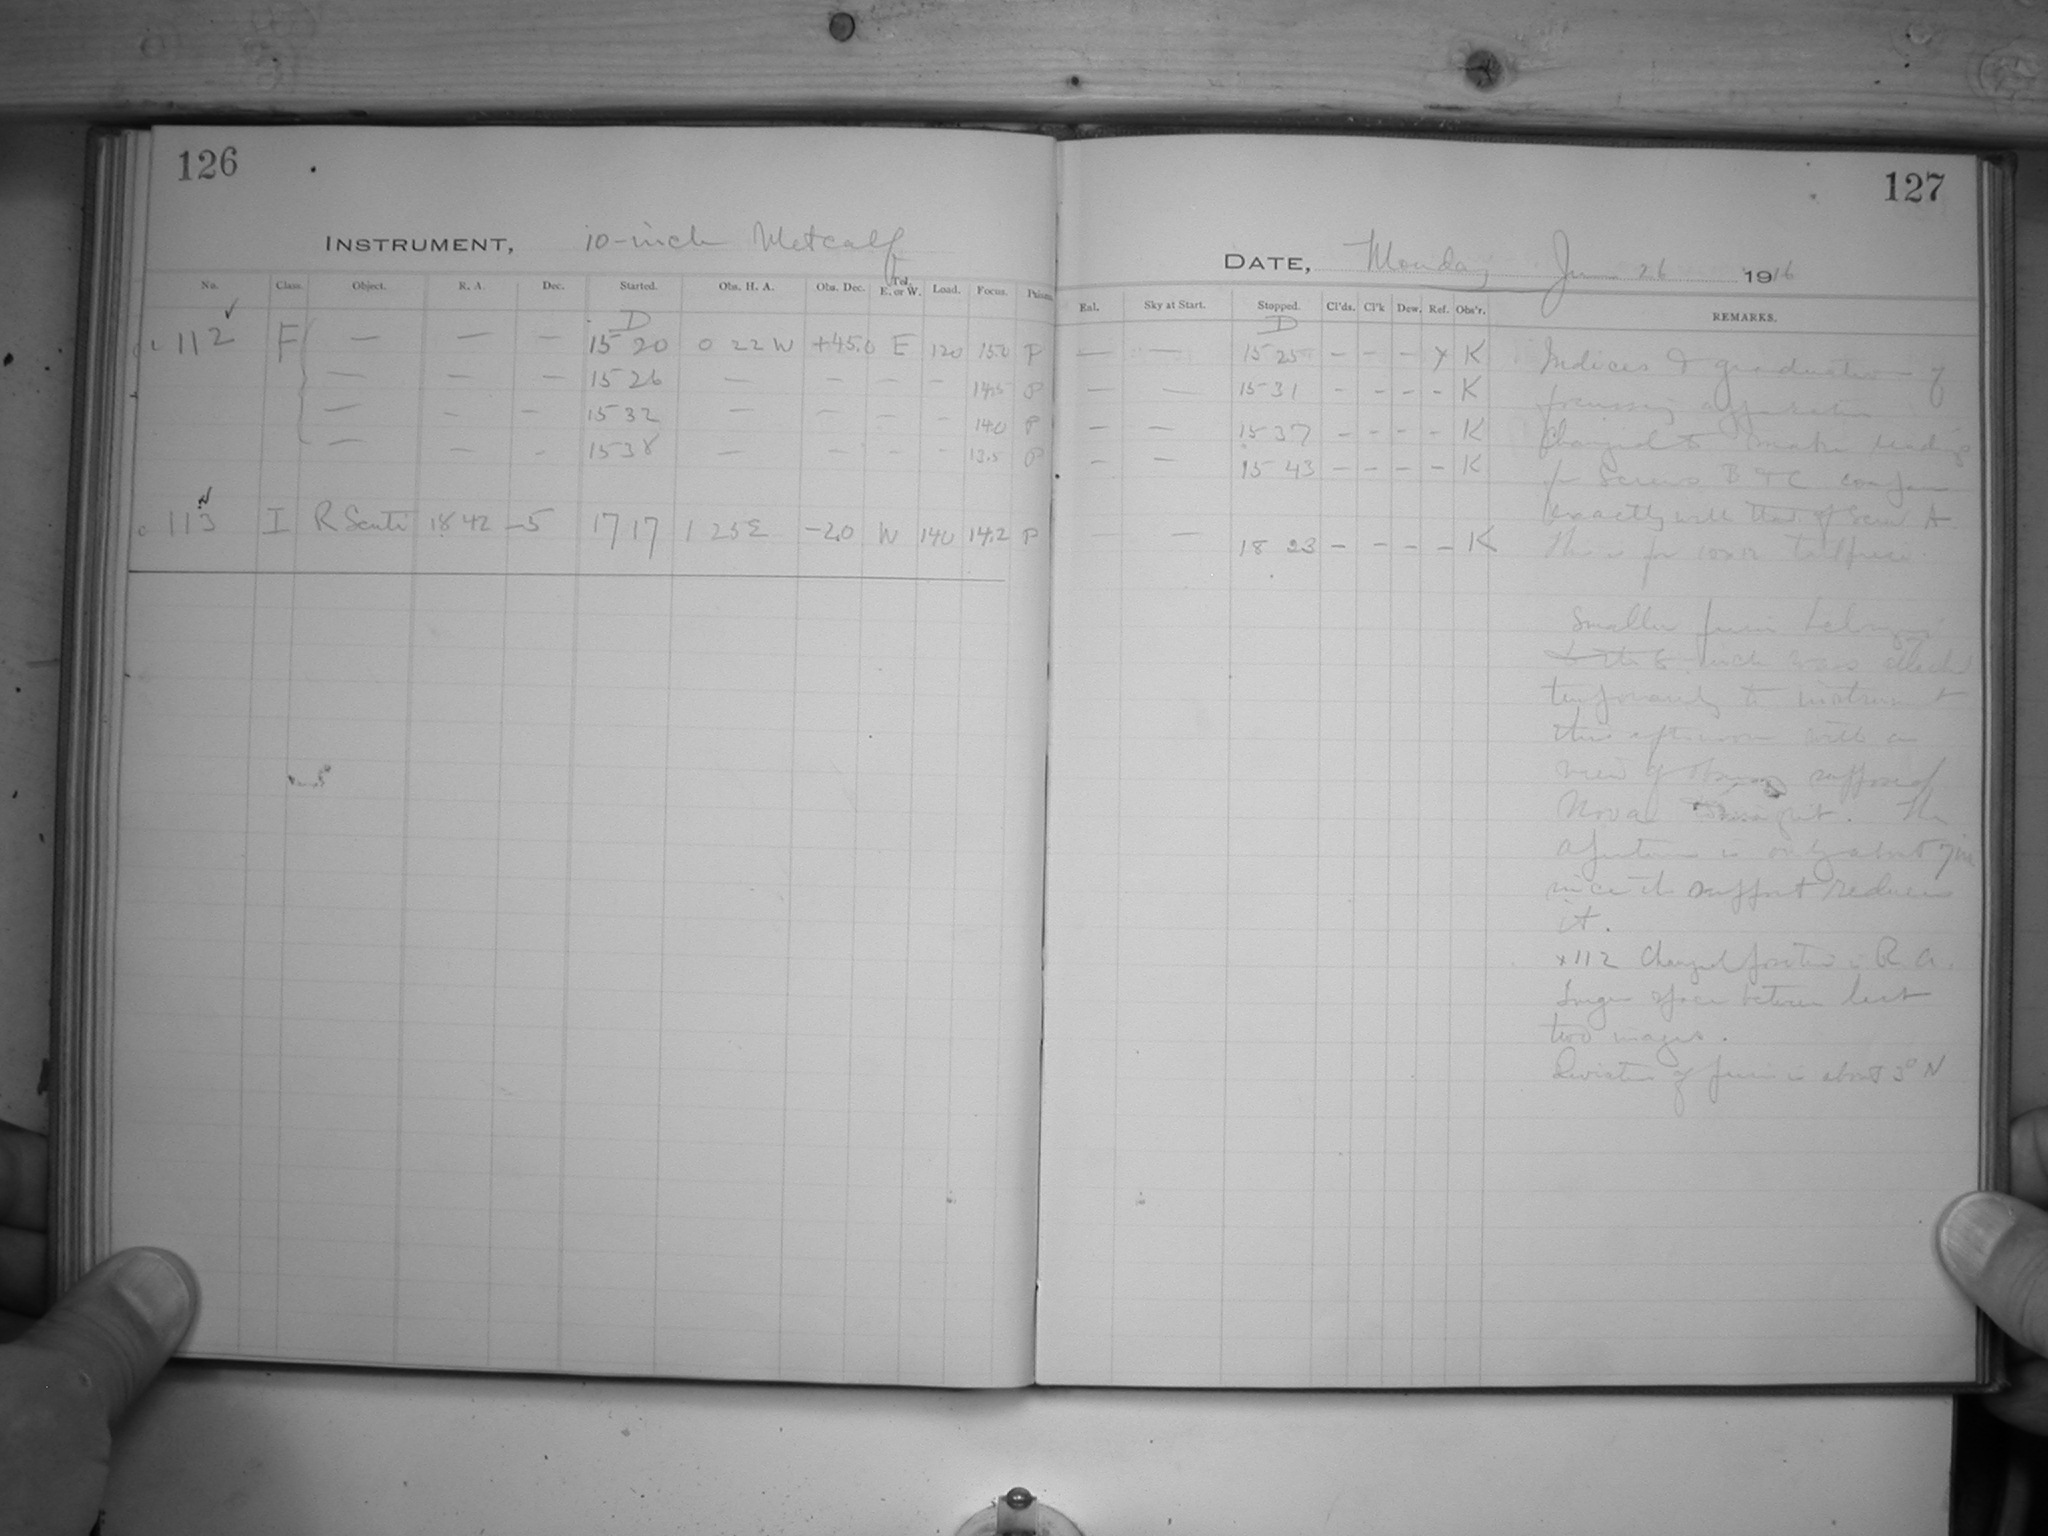 126
INSTRUMENT, 10-inch Metcalf
No. Class. Object. R. A. Dec. Started. Obs. H. A. Obs. Dec. Tel. E. or W. Load. Focus. Prism
D
112 F — — — 15 20 0 22 W +45.0 E 120 15.0 P
— — — 15 26 — — — — 14.5 P
— — — 15 32 — — — — 14.0 P
— — - 15 38 — — — — 13.5 P
113 I R Scuti 18 42 -5 17 17 1 25 E -2.0 W 140 14.2 P
127
DATE, Monday June 26 1916
Eal. Sky at Start. Stopped. Cl'ds. Cl'k Dew. Ref. Obs'r. REMARKS.
D
— — 15 25 - - - x K
— — 15 31 - - - - K
— — 15 37 - - - - K
— — 15 43 - - - - K
— — 18 23 - - - - K
Indices & graduation of
focussing apparatus
changed to make read'gs
for Screws B & C
exactly with that of Screw A
This is for tailpiece.
Smaller prism belonging
to the 8 inch was attached
temporarily to instrument
this afternoon with a
view of supposed
Nova The
aperture is only about 7 in
since the support reduces
it.
x112 Changed position in R. A.
Larger space between last
two images.
Deviation of prism is about 3° N